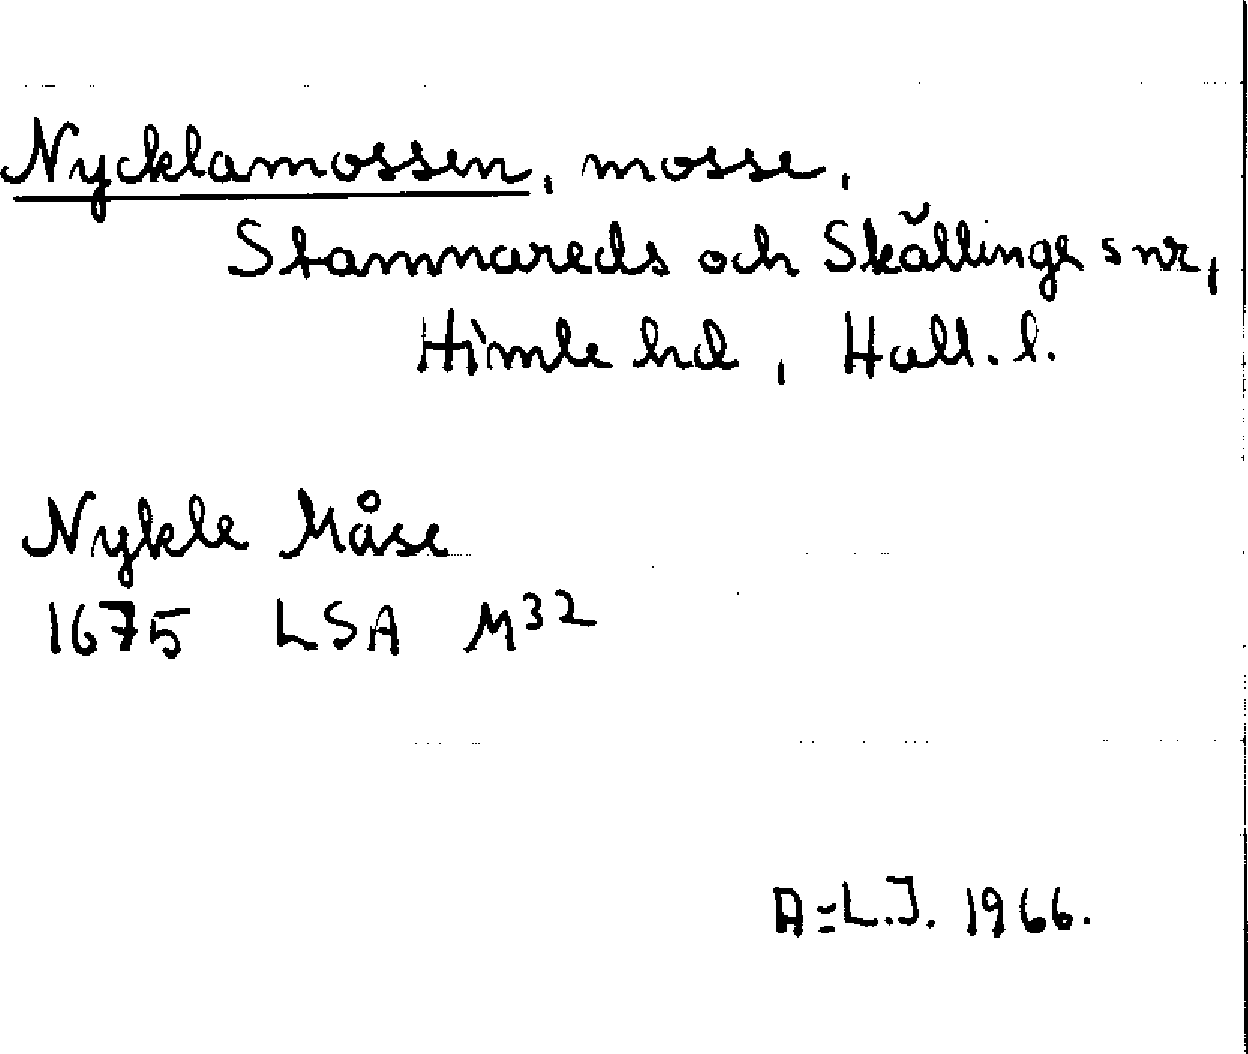 Nycklamossen, mosse,
Stamnareds och Skällinge snr,
Himle hd, Hall. l.
Nykle Måse
1675 LSA M32
A-L.J. 1966.